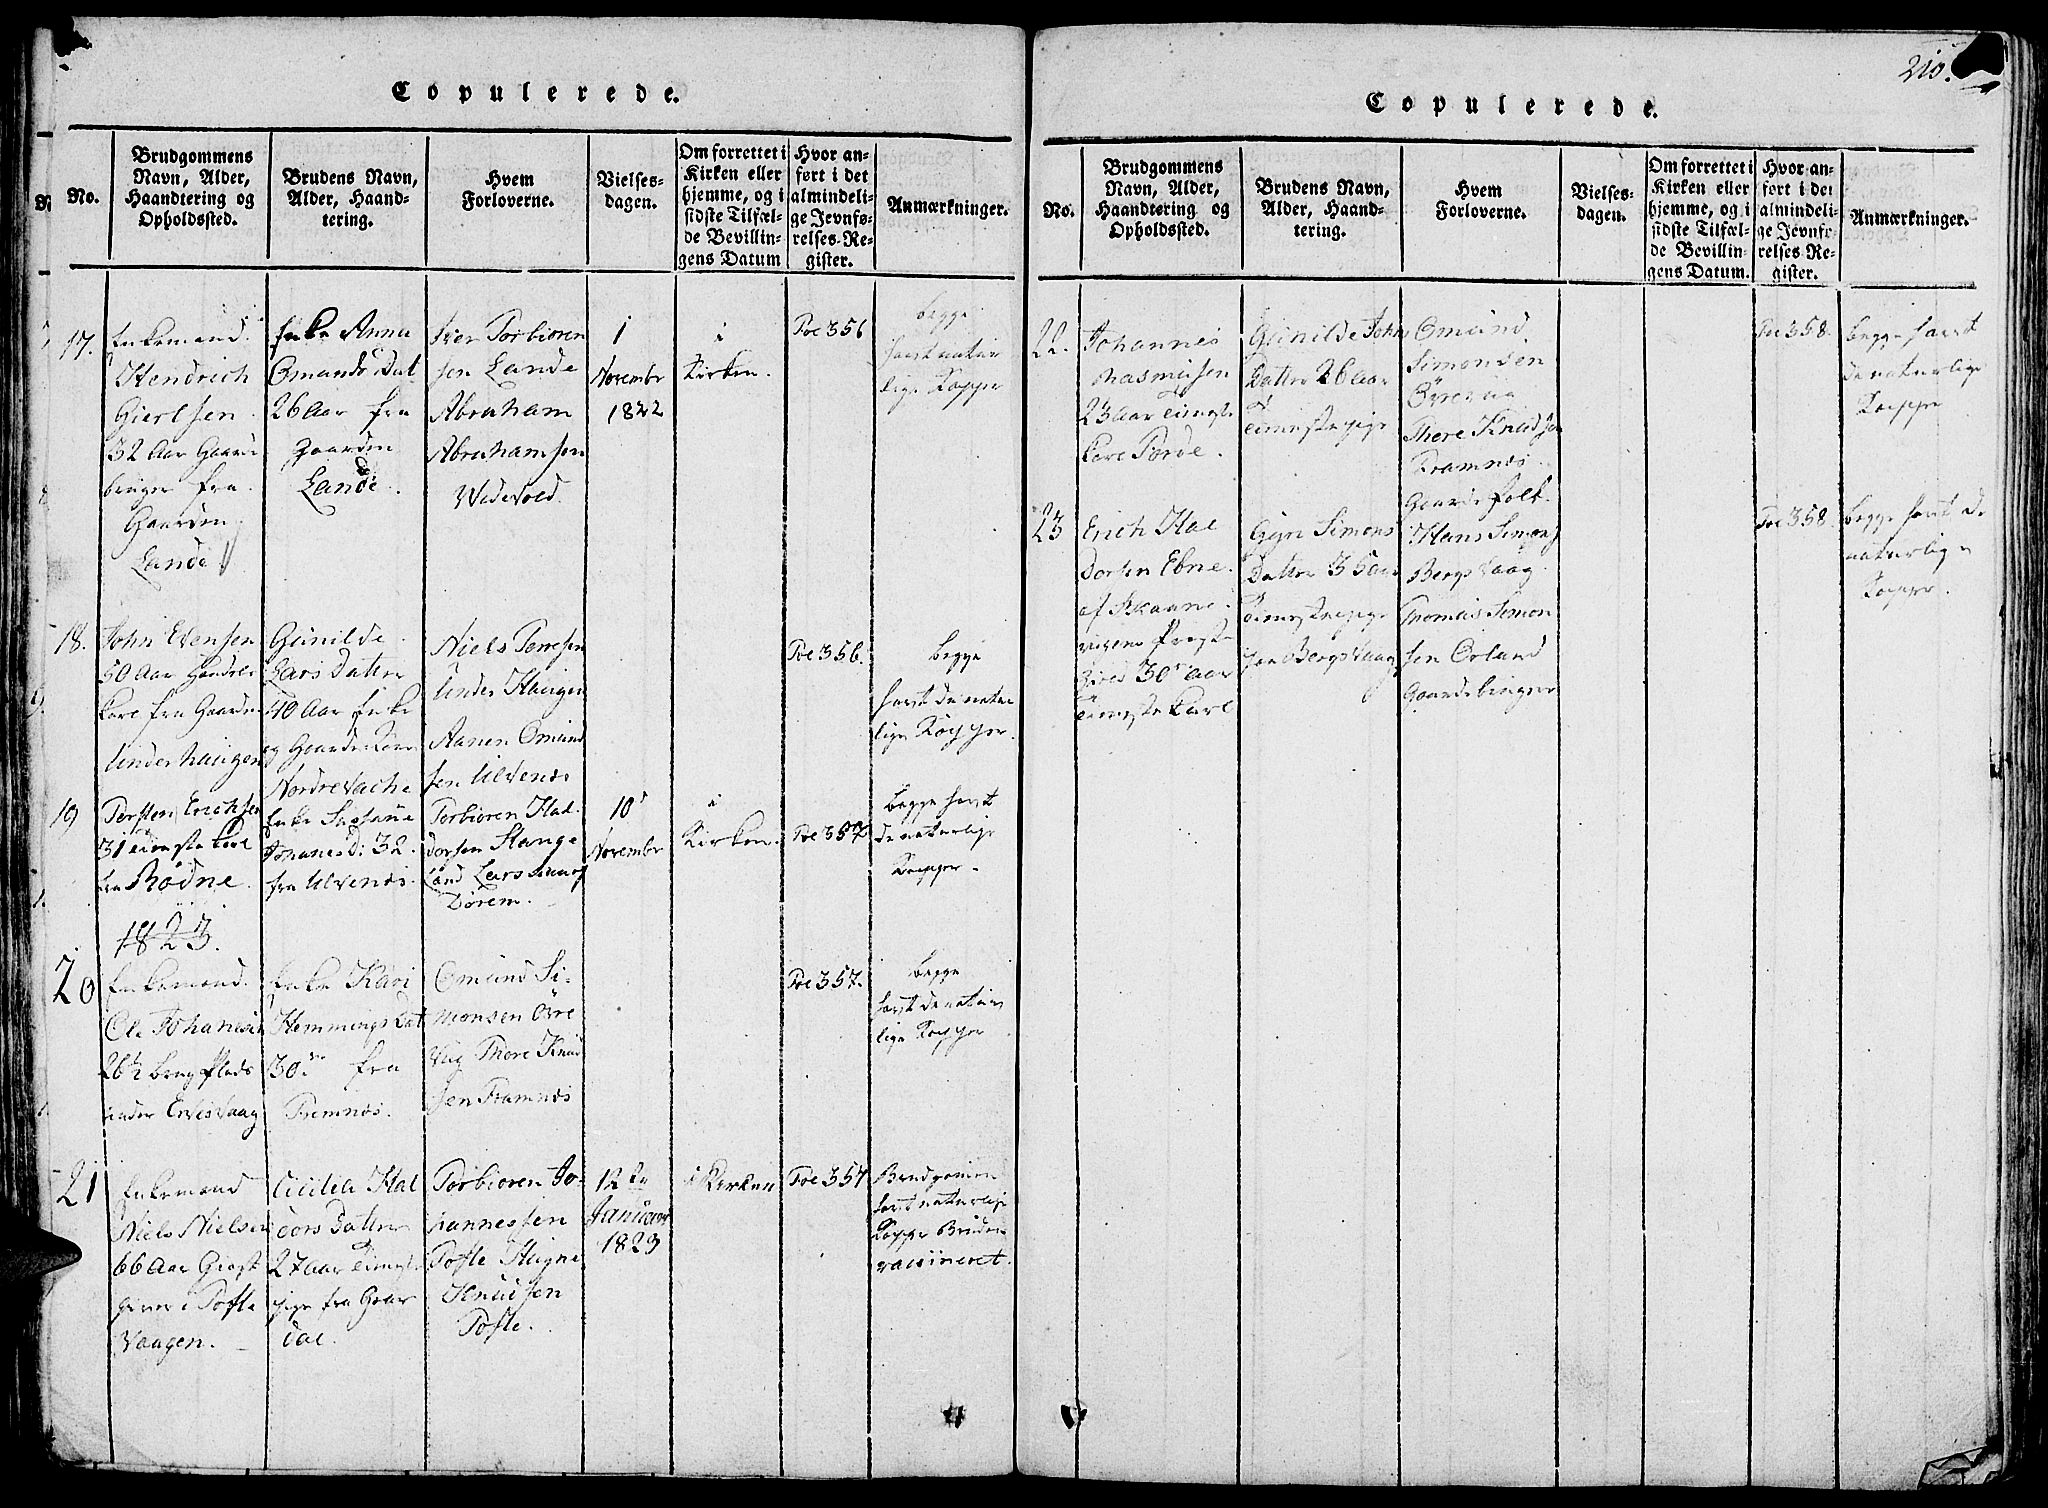 Copulerede.
No.
Brudgommens
Navn, Alder,
Haandtering og
Opholdssted.
Brudens Navn,
Alder, Haand-
tering.
Hvem
Forloverne.
Vielses-
dagen.
Om forrettet i
Kirken eller
hjemme, og i
sidste Tilfæl-
de Bevillin-
gens Datum
Hvor an-
ført i det
almindeli-
ge Jevnfø-
relses-Re-
gister.
Anmærkninger.
17.
Enkemand
Hendrich
Giertsen
32 Aar Gaard
bruger fra
Gaarden
Lande
Enke Anna
Omunds Dat
26 Aar fra
Gaarden
Lande.
Iver Torbiøren
sen Lande
Abraham
Abrahamsen
Widvold
1
November
1822
i
Kirken.
Foe 356
begge
havt natur
lige Kopper
18.
John Evensen
50 Aar
fra Gaarden
Underhaugen
Gunilde
Lars Datter
40 Aar Enke
Nordre Vache
Niels Torresen
Under Haugen
Aanen Omund
sen Ulvenes
Foe 356.
begge
havt de natur
lige Kopper.
19
Torsten Erichsen
31 tieneste Karl
fra Rødne.
Enke Susane
Johanesd: 32.
fra Ulvenes.
Torbiøren Hal
dorsen Stange
land Lars
Dørem.
10
November
i
Kirken
Foe 357
begge havt
de naturlige
Kopper.
1823.
20
Enkemand
Ole Johanesen
26½ brug Plads
under
Enke Kari
Hemmings Dat
30 fra
Tremnes.
Omund Si-
monsen Øre
Vag Thore Knud
sen Framnes
Foe 357.
begge
havt de natur
lige Kopper
21
Enkemand
Niels Nielsen
66 Aar Giest
giver i Tofte
Vaagen.
Cicilia Hal
dors Datter
27 Aar tienest
pige fra Goar
dal.
Torbiøren Jo-
hannessen
Tofte
Knudsen
Tofte.
12te
Januar
1823
i Kirken
Foe 357
Brudgomen
havt naturlige
Kopper Bruden
vacineret.
210.
Copulerede.
No.
Brudgommens
Navn, Alder,
Haandtering og
Opholdssted.
Brudens Navn,
Alder, Haand-
tering.
Hvem
Forloverne.
Vielses-
dagen.
Om forrettet i
Kirken eller
hjemme, og i
sidste Tilfæl-
de Bevillin-
gens Datum.
Hvor an-
ført i det
almindeli-
ge Jevnfø-
relses-Re-
gister.
Anmærkninger.
22.
Johannes
Rasmusen
23 Aar tieneste
Karl Førde.
Gunilde John
Datter 26 Aar
tienestepige
Omund
Simonsen
Øyrevig
Thore Knudsen
Framnes
Gaarde folk.
Foe 358.
begge havt
de naturlige
Kopper
23
Erich Hal
dorsen Ebne
af Skaane
vigens Preste
gield 30 Aar
tieneste Karl
Simons
Datter 35 Aar
tienestepige
fra Bergs Vaag
Hans Simons
Bergs Vaag
Thomas Simon
sen Ørland
Gaardebruger
Foe 358.
begge havt de
naturlige
Kopper.